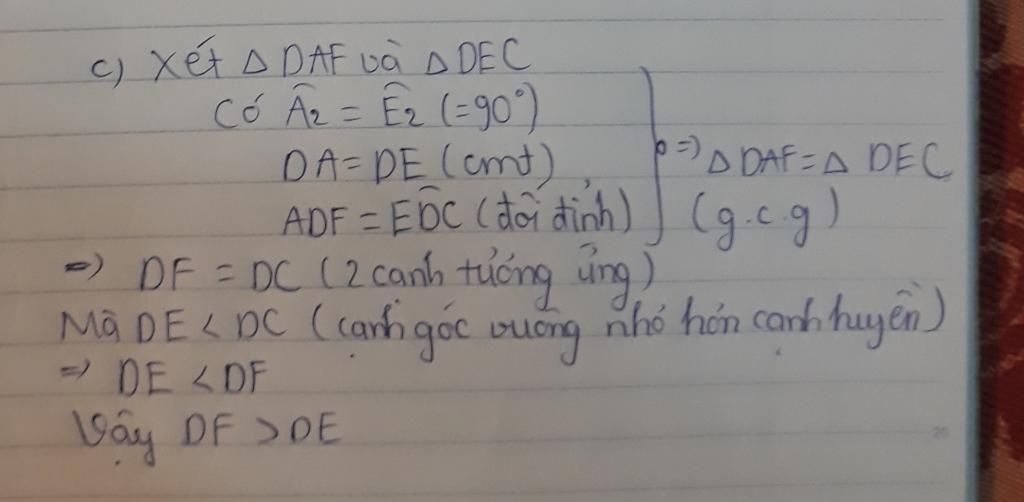 c) Xét △ DAF và △ DEC
Có Â₂ = Ê₂ (=90°)
DA = DE (cmt)
ADF = ED̂C (đối đỉnh)
=) △ DAF = △ DEC
(g.c.g)
=) DF = DC (2 cạnh tương ứng)
Mà DE < DC (cạnh góc vuông nhỏ hơn cạnh huyền)
=) DE < DF
Vậy DF > DE
20